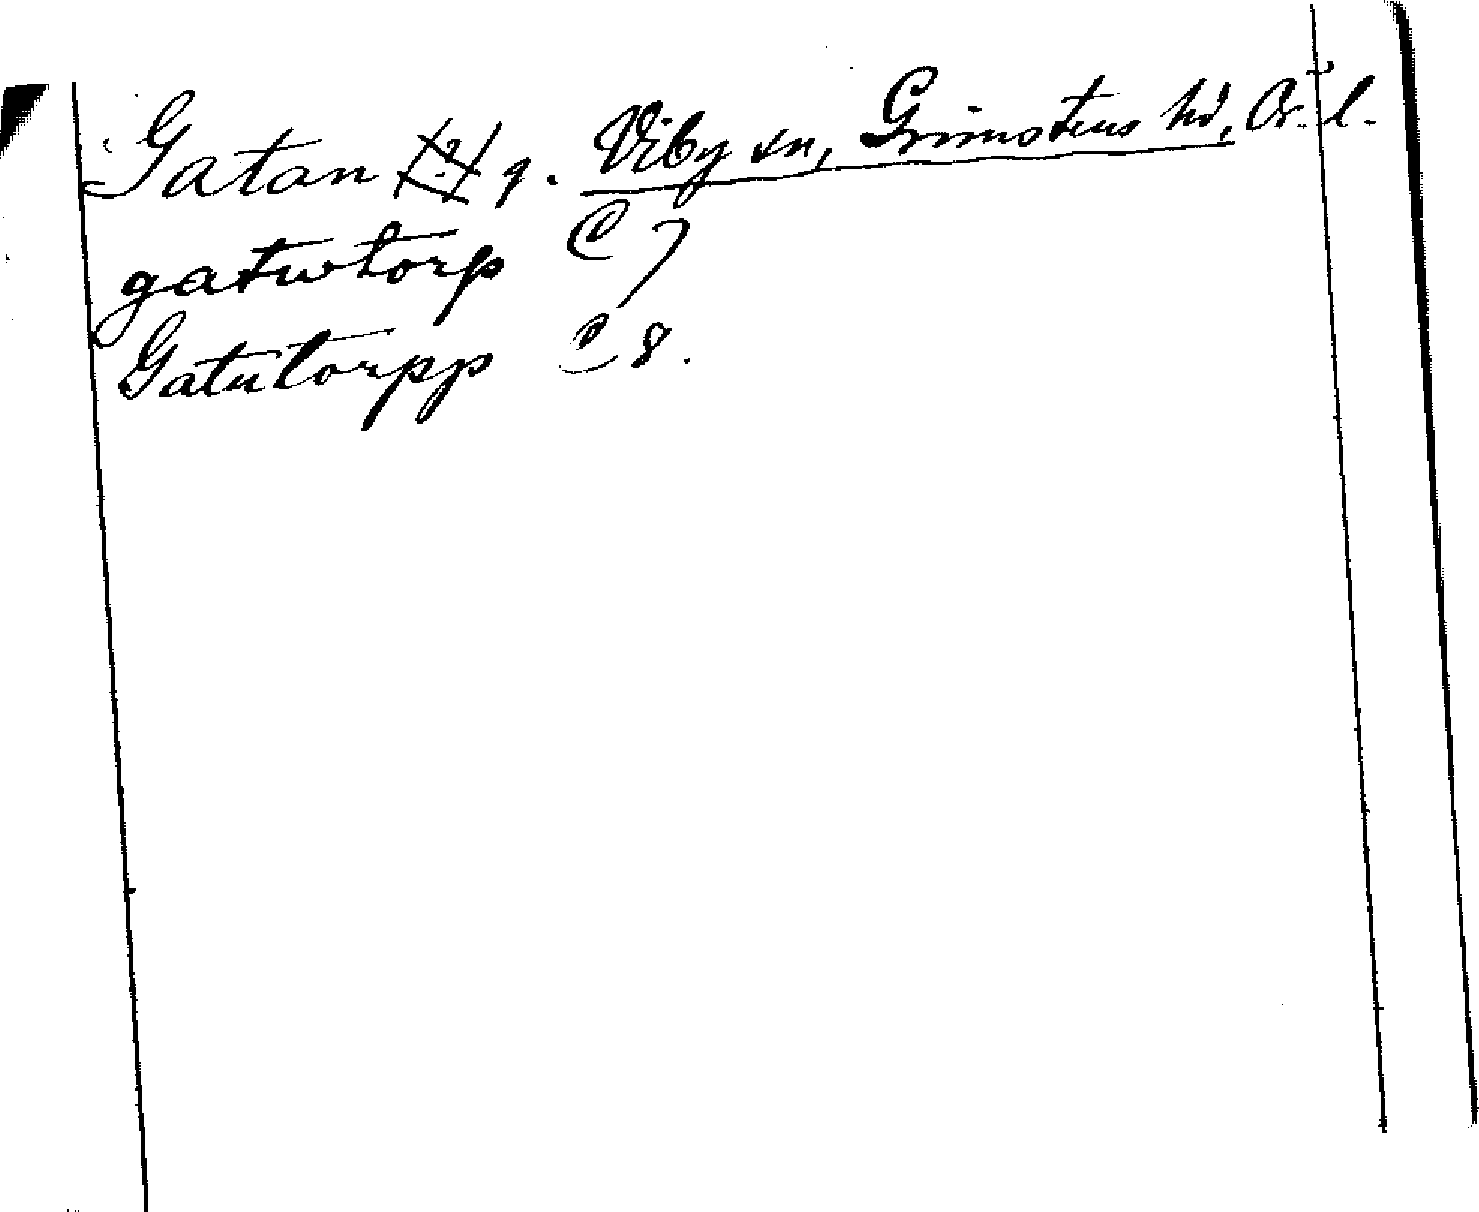 Gatan (?) g. Viby sn, Grimstens hd, Ör. l.
gatwtorp C 7
Gatutorpp C 8.